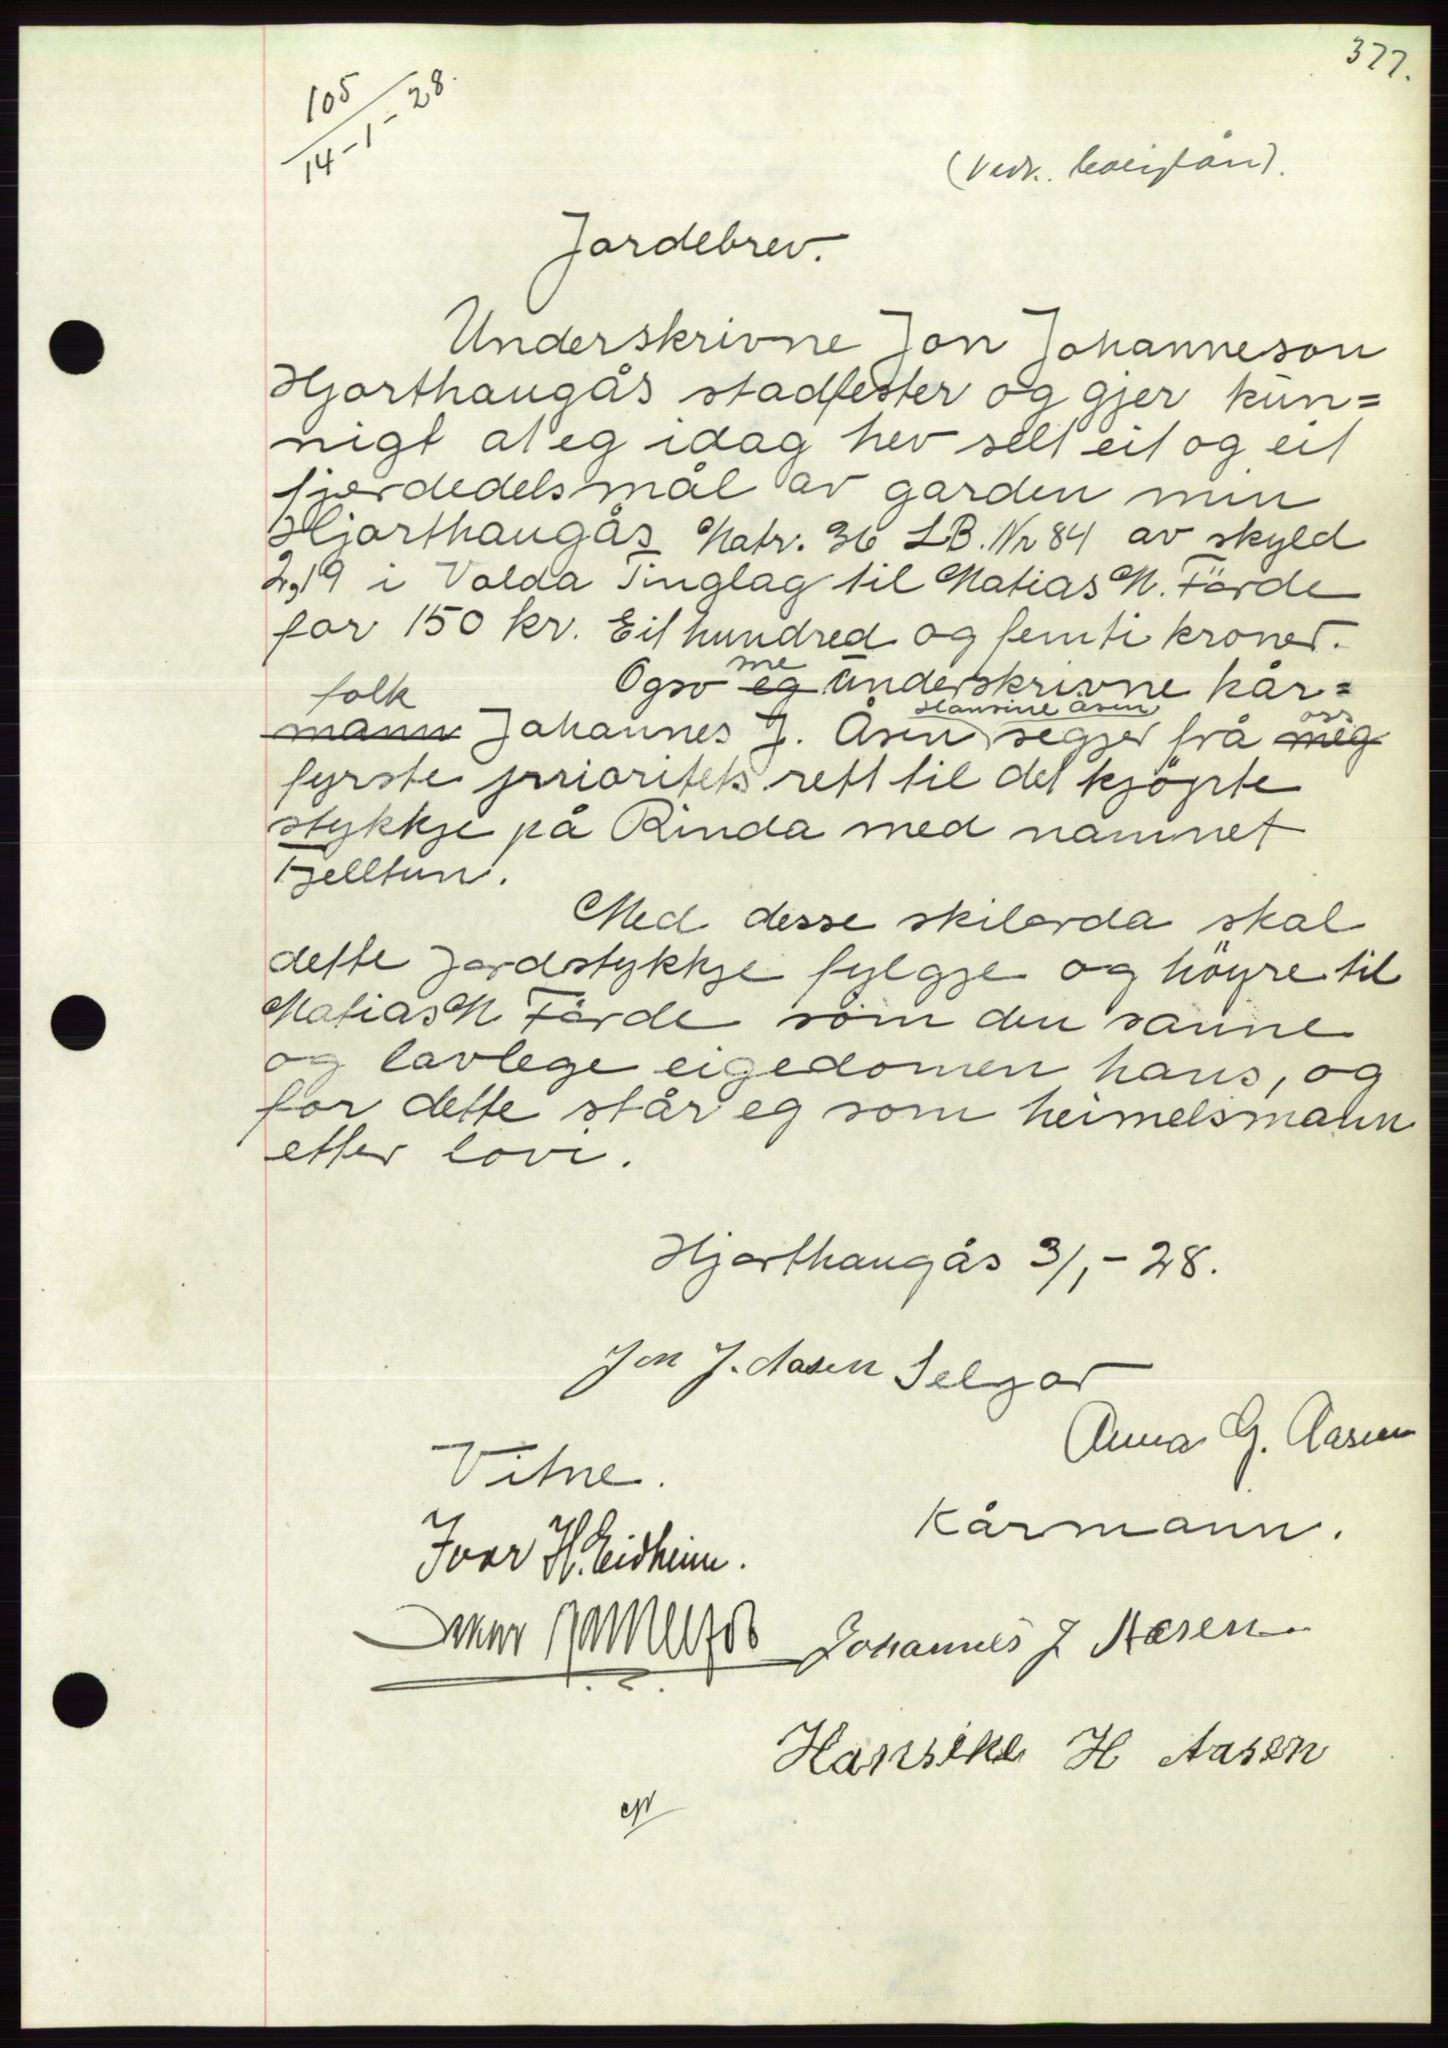 377.
105
14-1-28.
(Vedr. boliglån).
Jordebrev.
Underskrivne Jon Johanneson
Hjorthaugås stadfester og gjer kun=
nigt at eg idag hev selt eit og eit
fjerdedels mål av garden min
Hjorthaugås Matr. 36 LB. Nr 84 av skyld
2,19 i Volda Tinglag til Matias M. Förde
for 150 kr. Eit hundred og femti kroner.
Ogso eg me underskrivne kår=
mann folk Johannes J. Åsen, Hansine Åsen segjer frå meg oss
fyrste prioritets rett til det kjöpte
stykkje på Rinda med namnet
Fjelltun.
Med desse skilorda skal
dette jordstykkje fylgje og höyre til
Matias M Förde som den sanne
og lavlege eigedomen hans, og
for dette står eg som heimelsmann
etter lovi.
Hjorthaugås 3/1-28.
Jon J. Aasen Seljar
Anna G. Aasen
Vitne.
Kårmann.
Ivar H. Eidheim.
Johannes J Aasen
Hansine H Aasen